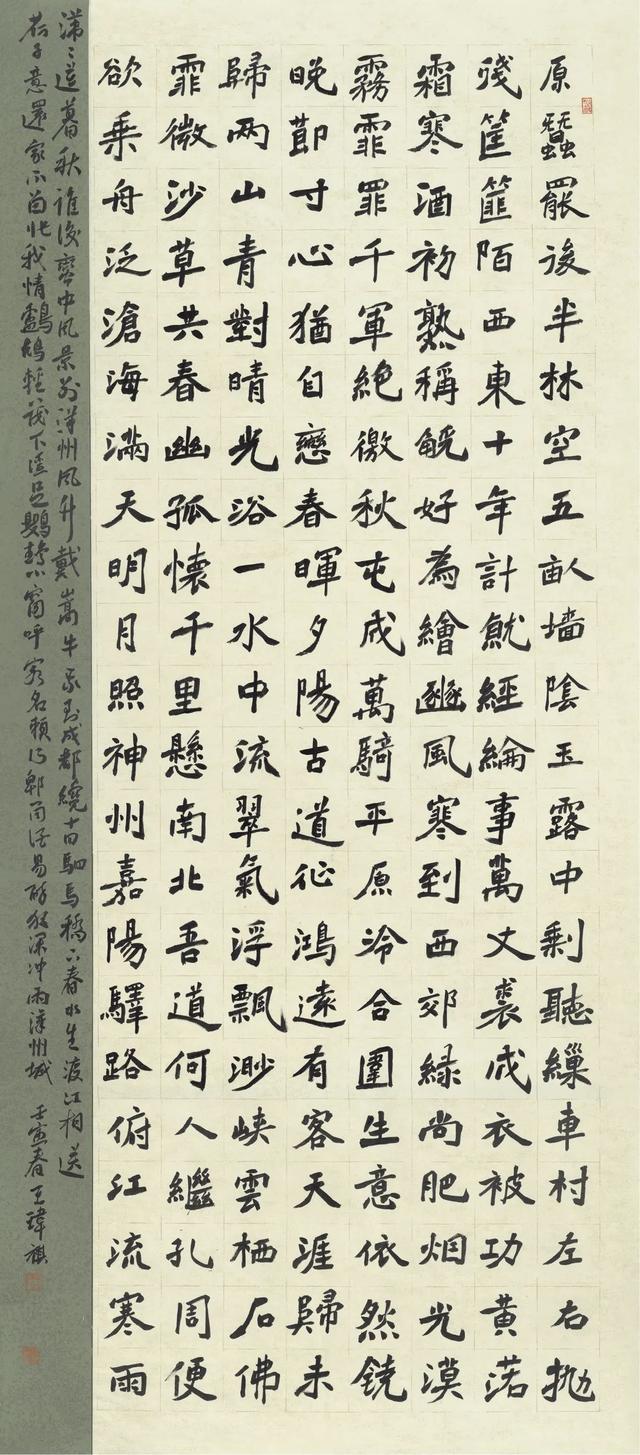 原蠶罷後半林空五畝墻陰玉露中剩聽繅車村左右拋
殘筐篚陌西東十年計就經綸事萬丈裘成衣被功黃落
霜寒酒初熟稱觥好為繪豳風寒到西郊綠尚肥烟光漠
霧霏罪千軍絕徼秋屯成萬騎平原冷合圍生意依然饒
晚節寸心猶自戀春暉夕陽古道征鴻遠有客天涯歸未
歸兩山青對晴光浴一水中流翠氣浮飄渺峽雲栖石佛
霏微沙草共春幽孤懷千里懸南北吾道何人繼孔周便
欲乘舟泛滄海滿天明月照神州嘉陽驛路俯江流寒雨
暮秋誰後 中風景 州 戴嵩牛 我到成都繞十日駟馬橋下春水生渡江相送
荷子意還家不留非我情鸕鶿輕筏下溪足鸚鵡小窗呼客名賴得郫筒酒易醉夜深冲雨漢州城 壬寅春王瑋祺